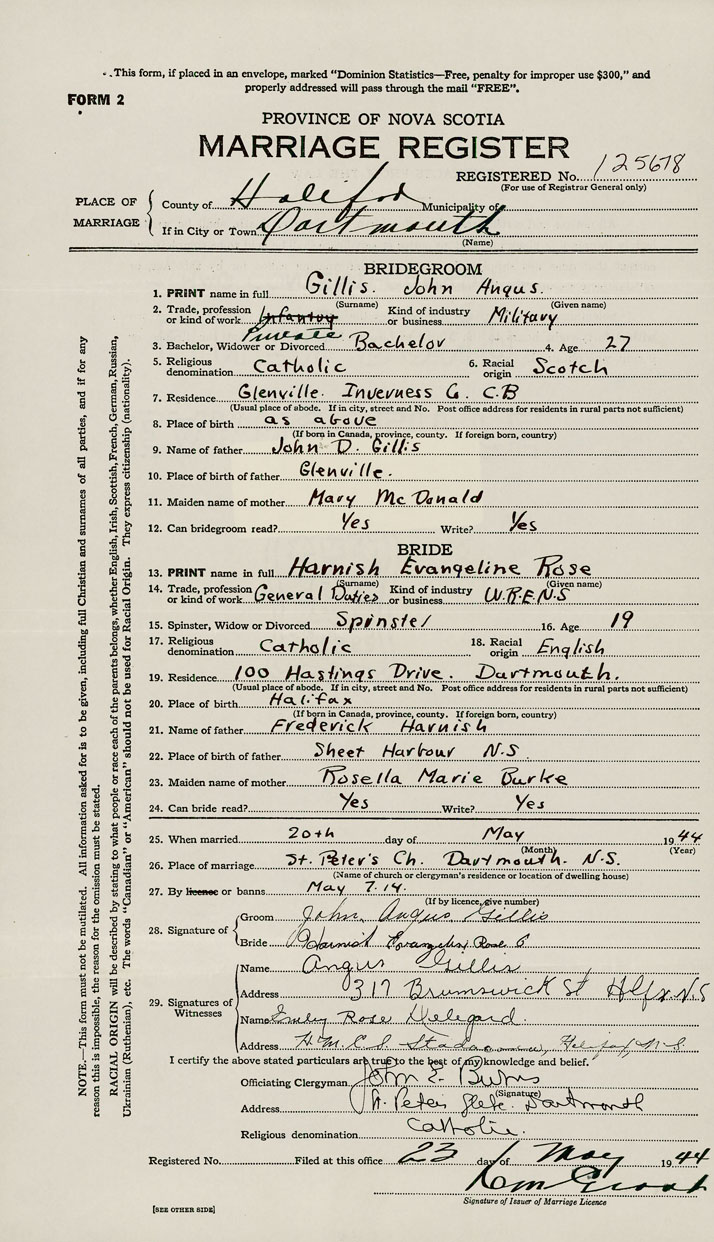 . .This form, if placed in an envelope, marked "Dominion Statistics—Free, penalty for improper use $300," and
properly addressed will pass through the mail "FREE".
FORM 2
PROVINCE OF NOVA SCOTIA
MARRIAGE REGISTER
REGISTERED No. 125678
(For use of Registrar General only)
PLACE OF MARRIAGE
County of Halifax Municipality of
If in City or Town Dartmouth
(Name)
BRIDEGROOM
1. PRINT name in full Gillis. John Angus.
(Surname) (Given name)
2. Trade, profession or kind of work Infantry Private Kind of industry or business Military
3. Bachelor, Widower or Divorced Bachelor 4. Age 27
5. Religious denomination Catholic 6. Racial origin Scotch
7. Residence Glenville. Inverness Co. C.B
(Usual place of abode. If in city, street and No. Post office address for residents in rural parts not sufficient)
8. Place of birth as above
(If born in Canada, province, county. If foreign born, country)
9. Name of father John D. Gillis
10. Place of birth of father Glenville.
11. Maiden name of mother Mary McDonald
12. Can bridegroom read? Yes Write? Yes
BRIDE
13. PRINT name in full Harnish Evangeline Rose
(Surname) (Given name)
14. Trade, profession or kind of work General Duties Kind of industry or business W.R.E.N.S
15. Spinster, Widow or Divorced Spinster 16. Age 19
17. Religious denomination Catholic 18. Racial origin English
19. Residence 100 Hastings Drive. Dartmouth.
(Usual place of abode. If in city, street and No. Post office address for residents in rural parts not sufficient)
20. Place of birth Halifax
(If born in Canada, province, county. If foreign born, country)
21. Name of father Frederick Harnish
22. Place of birth of father Sheet Harbour N.S.
23. Maiden name of mother Rosella Marie Burke
24. Can bride read? Yes Write? Yes
25. When married 20th day of May 1944
(Month) (Year)
26. Place of marriage St. Peter's Ch. Dartmouth. N.S.
(Name of church or clergyman's residence or location of dwelling house)
27. By licence or banns May 7.14.
(If by licence, give number)
28. Signature of
Groom John Angus Gillis
Bride Harnish Evangeline Rose
29. Signatures of Witnesses
Name Angus Gillis
Address 317 Brunswick St Hlfx. N.S
Name Emily Rose
Address H.M.C.S. Stadacona, Halifax, N.S.
I certify the above stated particulars are true to the best of my knowledge and belief.
Officiating Clergyman John E. Burns
(Signature)
Address St. Peters Glebe. Dartmouth
Religious denomination Catholic.
Registered No. Filed at this office 23 day of May 1944
Signature of Issuer of Marriage Licence
[SEE OTHER SIDE]
NOTE.—This form must not be mutilated. All information asked for is to be given, including full Christian and surnames of all parties, and if for any
reason this is impossible, the reason for the omission must be stated.
RACIAL ORIGIN will be described by stating to what people or race each of the parents belongs, whether English, Irish, Scottish, French, German, Russian,
Ukrainian (Ruthenian), etc. The words "Canadian" or "American" should not be used for Racial Origin. They express citizenship (nationality).